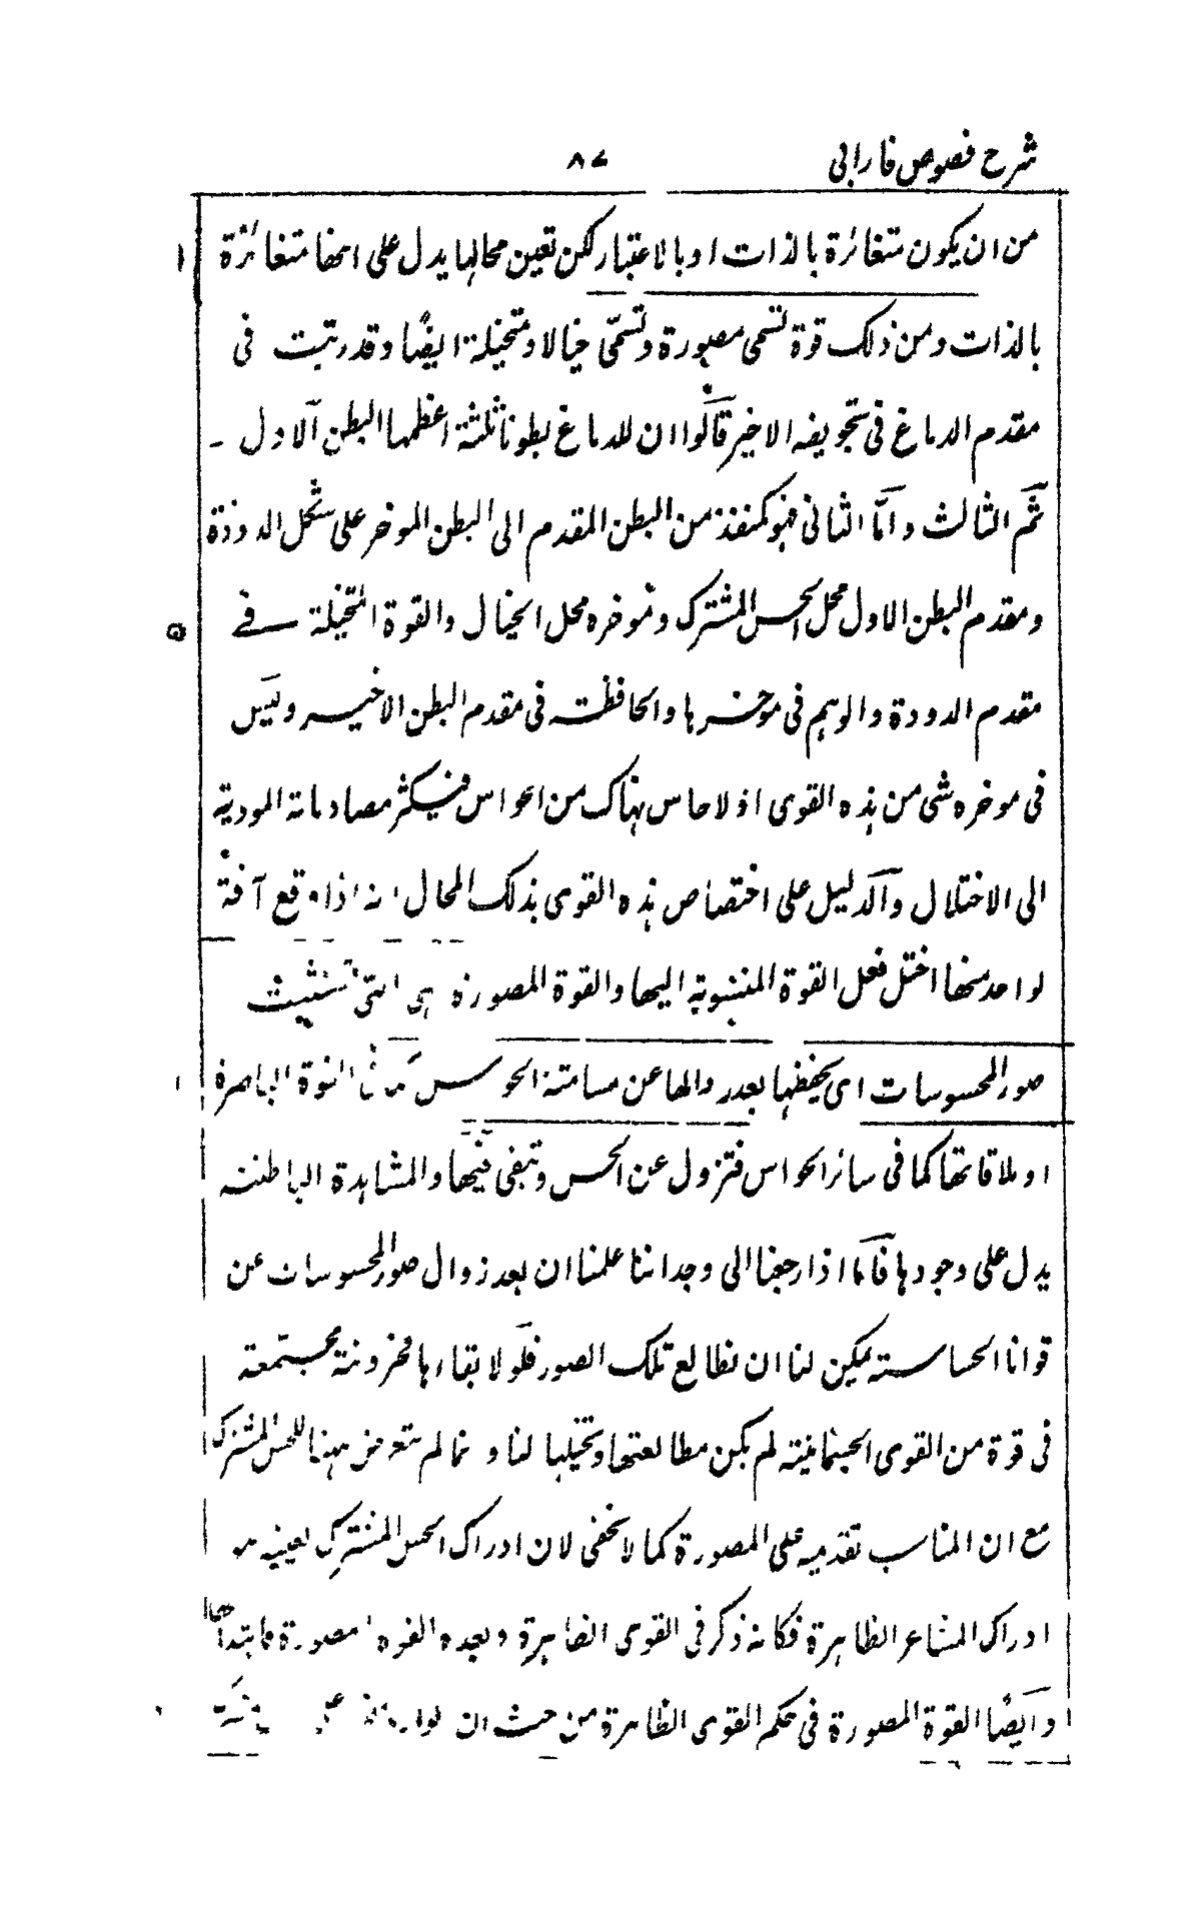 شرح فصوص فارابی ۸۷
من ان یکون متغائرة بالذات او بالاعتبار لکن تعین محالها یدل علی انها متغائرة
بالذات ومن ذلک قوة تسمی مصورة وتسمّی خیالا ومتخیلة ایضًا وقد رتبت فی
مقدم الدماغ فی تجویفه الاخیر قالوا ان للدماغ بطونا ثلثة اعظمها البطن الاول ۔
ثم الثالث وامّا الثانی فهو کمنفذ من البطن المقدم الی البطن الموخر علی شکل الدودة
ومقدم البطن الاول محل الحس المشترک وموخره محل الخیال والقوة المتخیلة فے
مقدم الدودة والوہم فی موخرہا والحافظة فی مقدم البطن الاخیر ولیس
فی موخره شی من ہذہ القوی اذ لا حاس ہناک من الحواس فیکثر مصادماتة المودیة
الی الاختلال والدلیل علی اختصاص ہذہ القوی بذلک المحال انه اذا وقع آفة
لواحد منها اختل فعل القوة المنسوبة الیها والقوة المصورة ہی التی تستثبت
صور المحسوسات ای یحفظها بعد زوالها عن مسامتة الحواس کما فی القوة الباصرة
او ملاقاتها کما فی سائر الحواس فتزول عن الحس وتبقی فیها والمشاہدة الباطنة
یدل علی وجودہا فانا اذا رجعنا الی وجداننا علمنا ان بعد زوال صور المحسوسات عن
قوانا الحساسة یمکن لنا ان نطالع تلک الصور فلولا بقاءہا مخزونة مجتمعة
فی قوة من القوی الجسمانیة لم یکن مطالعتها وتخیلها لنا وانما لم یتعرض ہہنا للحس المشترک
مع ان المناسب تقدیمه علی المصورة کما لا یخفی لان ادراک الحس المشترک بعینه
ادراک المشاعر الظاہرة فکانه ذکر فی القوی الظاہرة وبعدہ القوة المصورة فابتدأ بها
وایضًا القوة المصورة فی حکم القوی الظاہرة من حیث ان